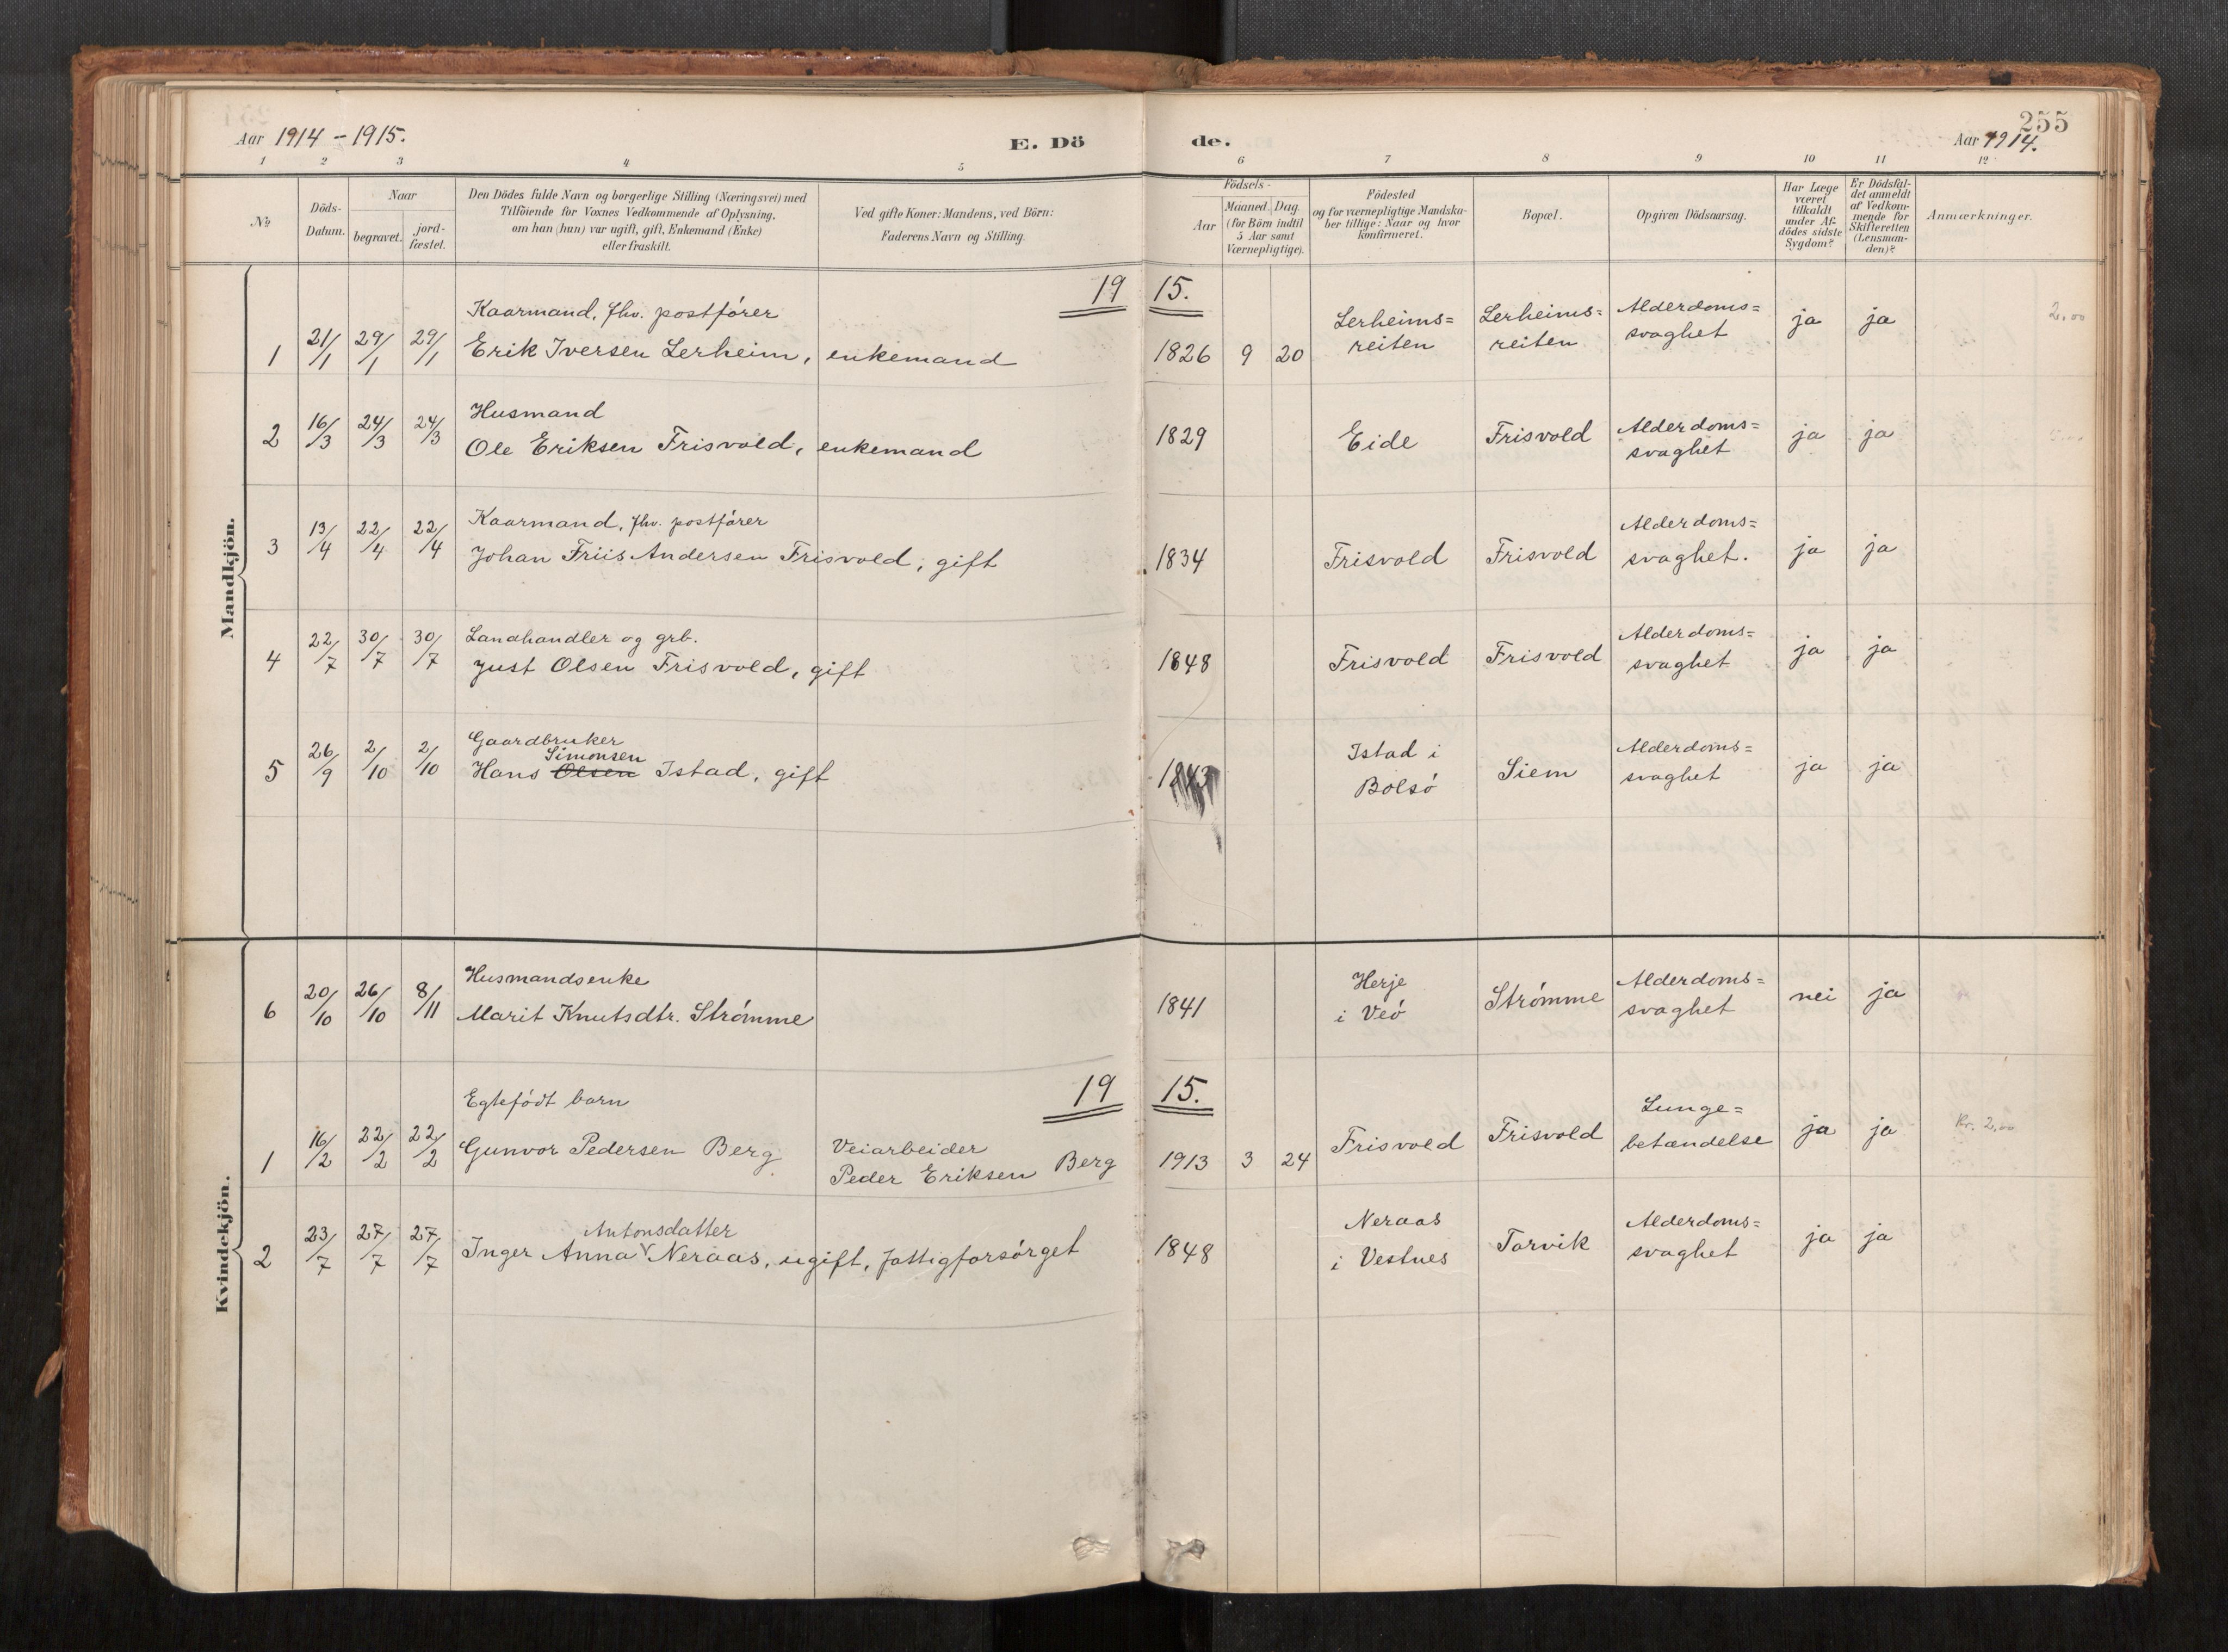 Aar 1914 - 1915.
E. Dö
de.
255
Aar 1914.
1 2 3 4 5 6 7 8 9 10 11 12
№
Döds-
Datum.
Naar
begravet.
jord-
fæstet.
Den Dödes fulde Navn og borgerlige Stilling (Næringsvei) med
Tilföiende for Voxnes Vedkommende af Oplysning,
om han (hun) var ugift, gift, Enkemand (Enke)
eller fraskilt.
Ved gifte Koner: Mandens, ved Börn:
Faderens Navn og Stilling.
Födsels-
Aar
Maaned. Dag.
(for Börn indtil
5 Aar samt
Værnepligtige).
Födested
og for værnepligtige Mandska-
ber tillige: Naar og hvor
konfirmeret.
Bopæl.
Opgiven Dödsaarsag.
Har Læge
været
tilkaldt
under Af-
dödes sidste
Sygdom?
Er Dödsfal-
det anmeldt
af Vedkom-
mende for
Skifteretten
(Lensman-
den)?
Anmærkninger.
Mandkjön.
19 15.
Kaarmand, fhv. postfører
1 21/1 29/1 29/1 Erik Iversen Lerheim, enkemand 1826 9 20 Lerheims= Lerheims= Alderdoms= ja ja 2,00
reiten reiten svaghet
Husmand
2 16/3 24/3 24/3 Ole Eriksen Frisvold, enkemand 1829 Eide Frisvold Alderdoms= ja ja
svaghet
Kaarmand, fhv. postfører
3 13/4 22/4 22/4 Johan Friis Andersen Frisvold, gift 1834 Frisvold Frisvold Alderdoms= ja ja
svaghet.
Landhandler og grb.
4 22/7 30/7 30/7 Just Olsen Frisvold, gift 1848 Frisvold Frisvold Alderdoms= ja ja
svaghet
Gaardbruker
Simonsen
5 26/9 2/10 2/10 Hans Olsen Istad, gift 1843 Istad i Siem Alderdoms= ja ja
Bolsø svaghet
Kvindekjön.
Husmandsenke
6 20/10 26/10 8/11 Marit Knutsdtr. Strømme 1841 Herje Strømme Alderdoms= nei ja
i Veø svaghet
19 15.
Egtefødt barn
1 16/2 22/2 22/2 Gunvor Pedersen Berg Veiarbeider
Peder Eriksen Berg 1913 3 24 Frisvold Frisvold Lunge= ja ja Kr. 2,00
betændelse
Antonsdatter
2 23/7 27/7 27/7 Inger Anna Neraas, ugift, fattigforsørget 1848 Neraas Torvik Alderdoms= ja ja
i Vestnes svaghet